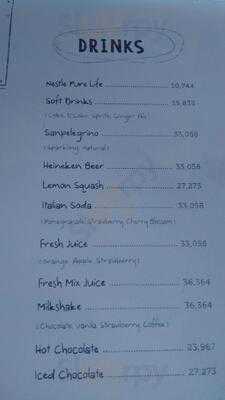 DRINKS
Nestle Pure Life 10,744
Soft Drinks 19,835
(Coke D'Coke Sprite Ginger Ale)
Sanpelegrino 33,058
(Sparkling Natural)
Heineken Beer 33,058
Lemon Squash 27,273
Italian Soda 33,058
(Pomegranate Strawberry Cherry Blossom)
Fresh Juice 33,058
(Orange Apple Strawberry)
Fresh Mix Juice 36,364
Milkshake 36,364
(Chocolate Vanila Strawberry Coffee)
Hot Chocolate 23,967
Iced Chocolate 27,273